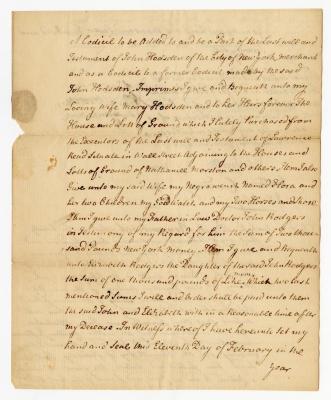 A Codicil to be Added to and be a Part of the Last will and
Testament of John Hodsden of the City of New York, merchant
and as a Codicil to a former Codicil made by the said
John Hodsden, Imprimis I give and Bequeath unto my
Loving Wife Mary Hodsden and to her Heirs forever The
House and Lott of Ground which I Lately Purchased from
the Executors of the Last will and Testament of Lawrence
Reid Situate in Wall Street Adjoining to the Houses and
Lotts of Ground of Nathaniel Marston and others, Item I also
Give unto my said Wife my Negro wench Named Flora and
her two Children and my Two Horses and
Item I give unto my Father in Law Doctor John Rodgers
in Testimony of my Regard for him the Sum of Two thou-
sand Pounds New York Money, Item I give and Bequeath
unto Elizabeth Rodgers the Daughter of the said John Rodgers
the sum of one thousand pounds of like money Which two last
mentioned Sums I will and Order shall be paid unto them
the said John and Elizabeth with in a Reasonable time after
my Decease. In Witness where of I have hereunto set my
hand and Seal this Eleventh Day of February in the
Year